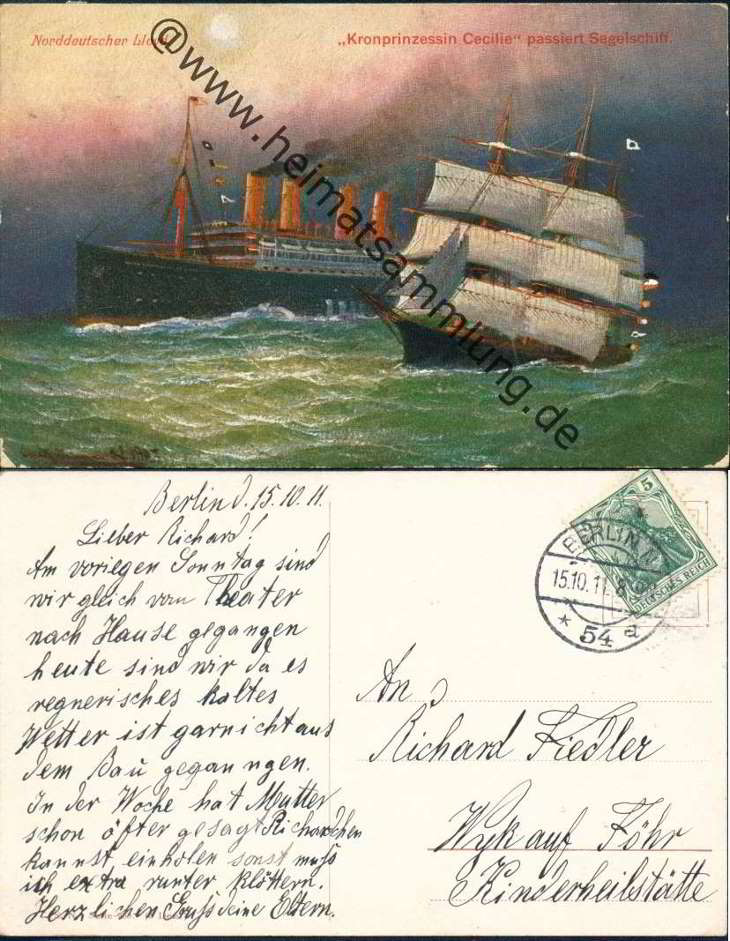 Norddeutscher Lloyd.
„Kronprinzessin Cecilie“ passiert Segelschiff.
@www.heimatsammlung.de
Berlin d. 15.10.11.
Lieber Richard!
Am voriegen Sonntag sind
wir gleich vom Theater
nach Hause gegangen
heute sind wir da es
regnerisches kaltes
Wetter ist garnicht aus
dem Bau gegangen.
In der Woche hat Mutter
schon öfter gesagt Richardchen
kannst einholen sonst muss
ich extra runter klöttern.
Herzlichen Gruss deine Eltern.
5
DEUTSCHES REICH
BERLIN
15.10.11. 8
* 54 a
An
Richard Fiedler
Wyk auf Föhr
Kinderheilstätte